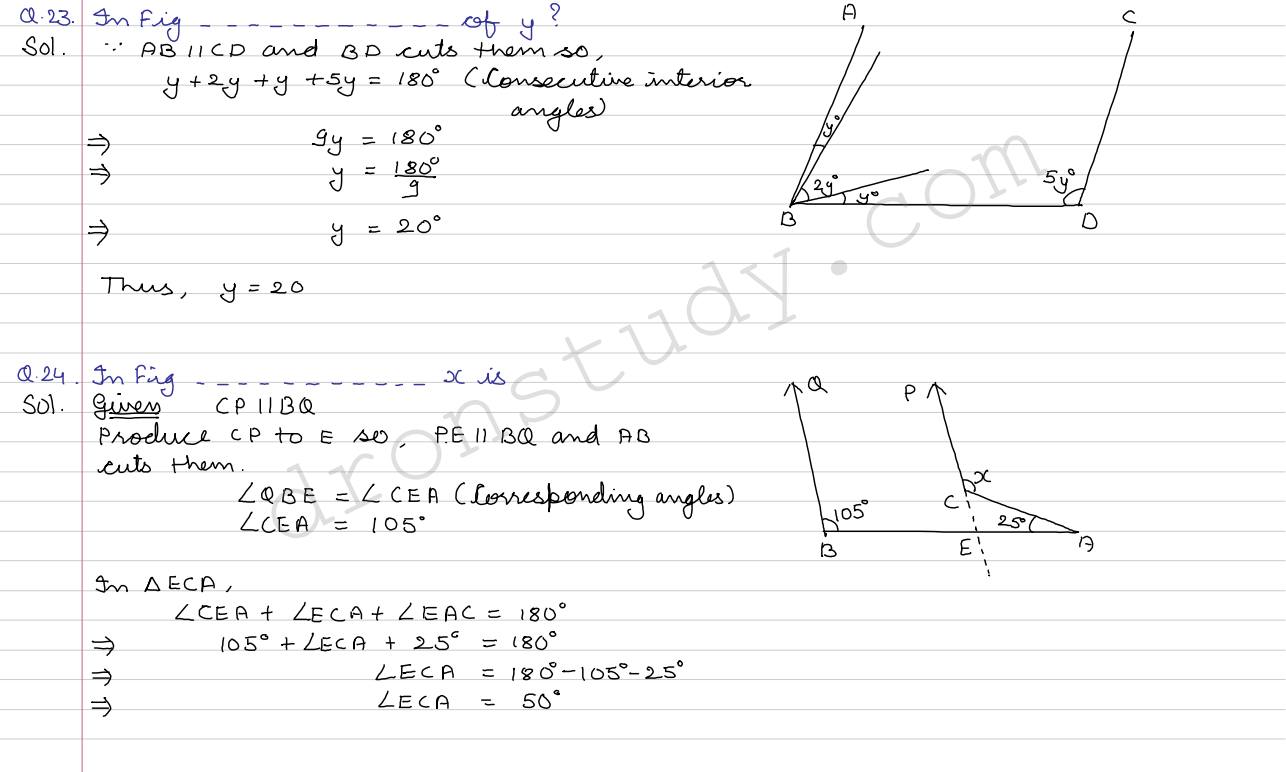 Q.23. In Fig ------------ of y?
Sol. ∵ AB || CD and BD cuts them so,
y + 2y + y + 5y = 180° (Consecutive interior
angles)
⇒ 9y = 180°
⇒ y = 180°/9
⇒ y = 20°
Thus, y = 20
A
C
y°
2y°
y°
5y°
B
D
Q.24. In Fig ------------ x is
Sol. Given CP || BQ
Produce CP to E so, PE || BQ and AB
cuts them.
∠QBE = ∠CEA (Corresponding angles)
∠CEA = 105°
In △ECA,
∠CEA + ∠ECA + ∠EAC = 180°
⇒ 105° + ∠ECA + 25° = 180°
⇒ ∠ECA = 180° - 105° - 25°
⇒ ∠ECA = 50°
Q
P
x
C
105°
25°
B
E
A
dronstudy.com